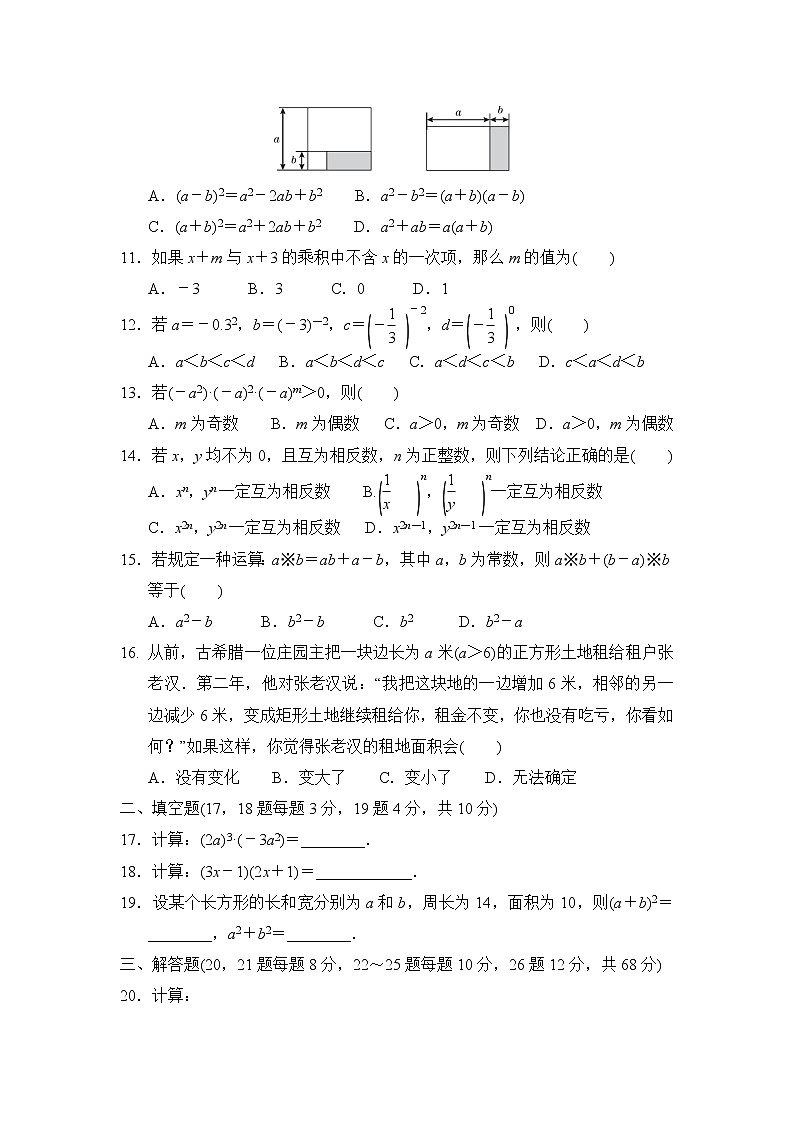 a b a b
A．(a－b)²＝a²－2ab＋b² B．a²－b²＝(a＋b)(a－b)
C．(a＋b)²＝a²＋2ab＋b² D．a²＋ab＝a(a＋b)
11．如果x＋m与x＋3的乘积中不含x的一次项，那么m的值为( )
A．－3 B．3 C．0 D．1
12．若a＝－0.3²，b＝(－3)⁻²，c＝(－1/3)⁻²，d＝(－1/3)⁰，则( )
A．a＜b＜c＜d B．a＜b＜d＜c C．a＜d＜c＜b D．c＜a＜d＜b
13．若(－a²)·(－a)²·(－a)ᵐ＞0，则( )
A．m为奇数 B．m为偶数 C．a＞0，m为奇数 D．a＞0，m为偶数
14．若x，y均不为0，且互为相反数，n为正整数，则下列结论正确的是( )
A．xⁿ，yⁿ一定互为相反数 B.(1/x)ⁿ，(1/y)ⁿ一定互为相反数
C．x²ⁿ，y²ⁿ一定互为相反数 D．x²ⁿ⁻¹，y²ⁿ⁻¹一定互为相反数
15．若规定一种运算：a※b＝ab＋a－b，其中a，b为常数，则a※b＋(b－a)※b
等于( )
A．a²－b B．b²－b C．b² D．b²－a
16．从前，古希腊一位庄园主把一块边长为a米(a＞6)的正方形土地租给租户张
老汉．第二年，他对张老汉说：“我把这块地的一边增加6米，相邻的另一
边减少6米，变成矩形土地继续租给你，租金不变，你也没有吃亏，你看如
何？”如果这样，你觉得张老汉的租地面积会( )
A．没有变化 B．变大了 C．变小了 D．无法确定
二、填空题(17，18题每题3分，19题4分，共10分)
17．计算：(2a)³·(－3a²)＝________．
18．计算：(3x－1)(2x＋1)＝____________．
19．设某个长方形的长和宽分别为a和b，周长为14，面积为10，则(a＋b)²＝
________，a²＋b²＝________．
三、解答题(20，21题每题8分，22～25题每题10分，26题12分，共68分)
20．计算：